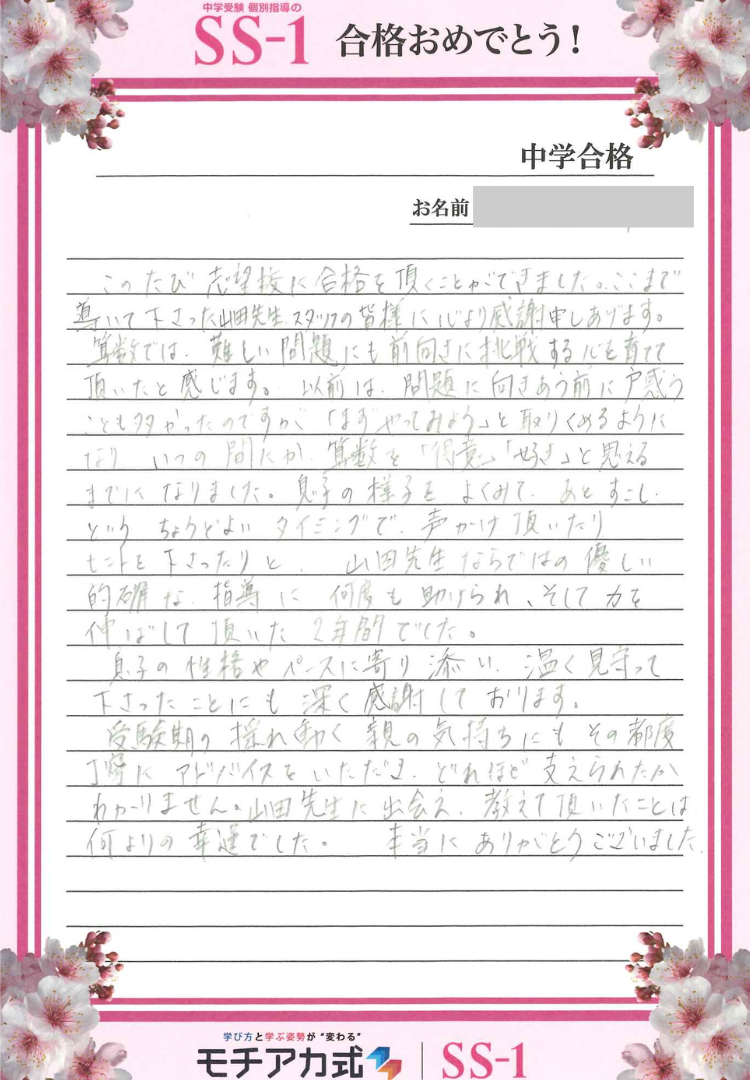 中学受験 個別指導の
SS-1 合格おめでとう!
中学合格
お名前
このたび 志望校に合格を頂くことができました。ここまで
導いて下さった山田先生、スタッフの皆様に心より感謝申しあげます。
算数では、難しい問題にも前向きに挑戦する心を育てて
頂いたと感じます。以前は、問題に向きあう前に戸惑う
ことも多かったのですが「まずやってみよう」と取りくめるように
なり いつの間にか、算数を「得意」「好き」と思える
までになりました。息子の様子を よくみて、あとすこし、
という ちょうどよい タイミングで、声かけ頂いたり
ヒントを下さったりと、山田先生ならではの優しい
的確な、指導に 何度も助けられ、そして力を
伸ばして頂いた 2年間でした。
息子の性格やペースに寄り添い、温く見守って
下さったことにも 深く感謝しております。
受験期の揺れ動く 親の気持ちにもその都度
丁寧に アドバイスをいただき、どれほど支えられたか
わかりません。山田先生に出会え、教えて頂いたことは
何よりの幸運でした。 本当にありがとうございました。
学び方と学ぶ姿勢が “変わる”
モチアカ式 SS-1